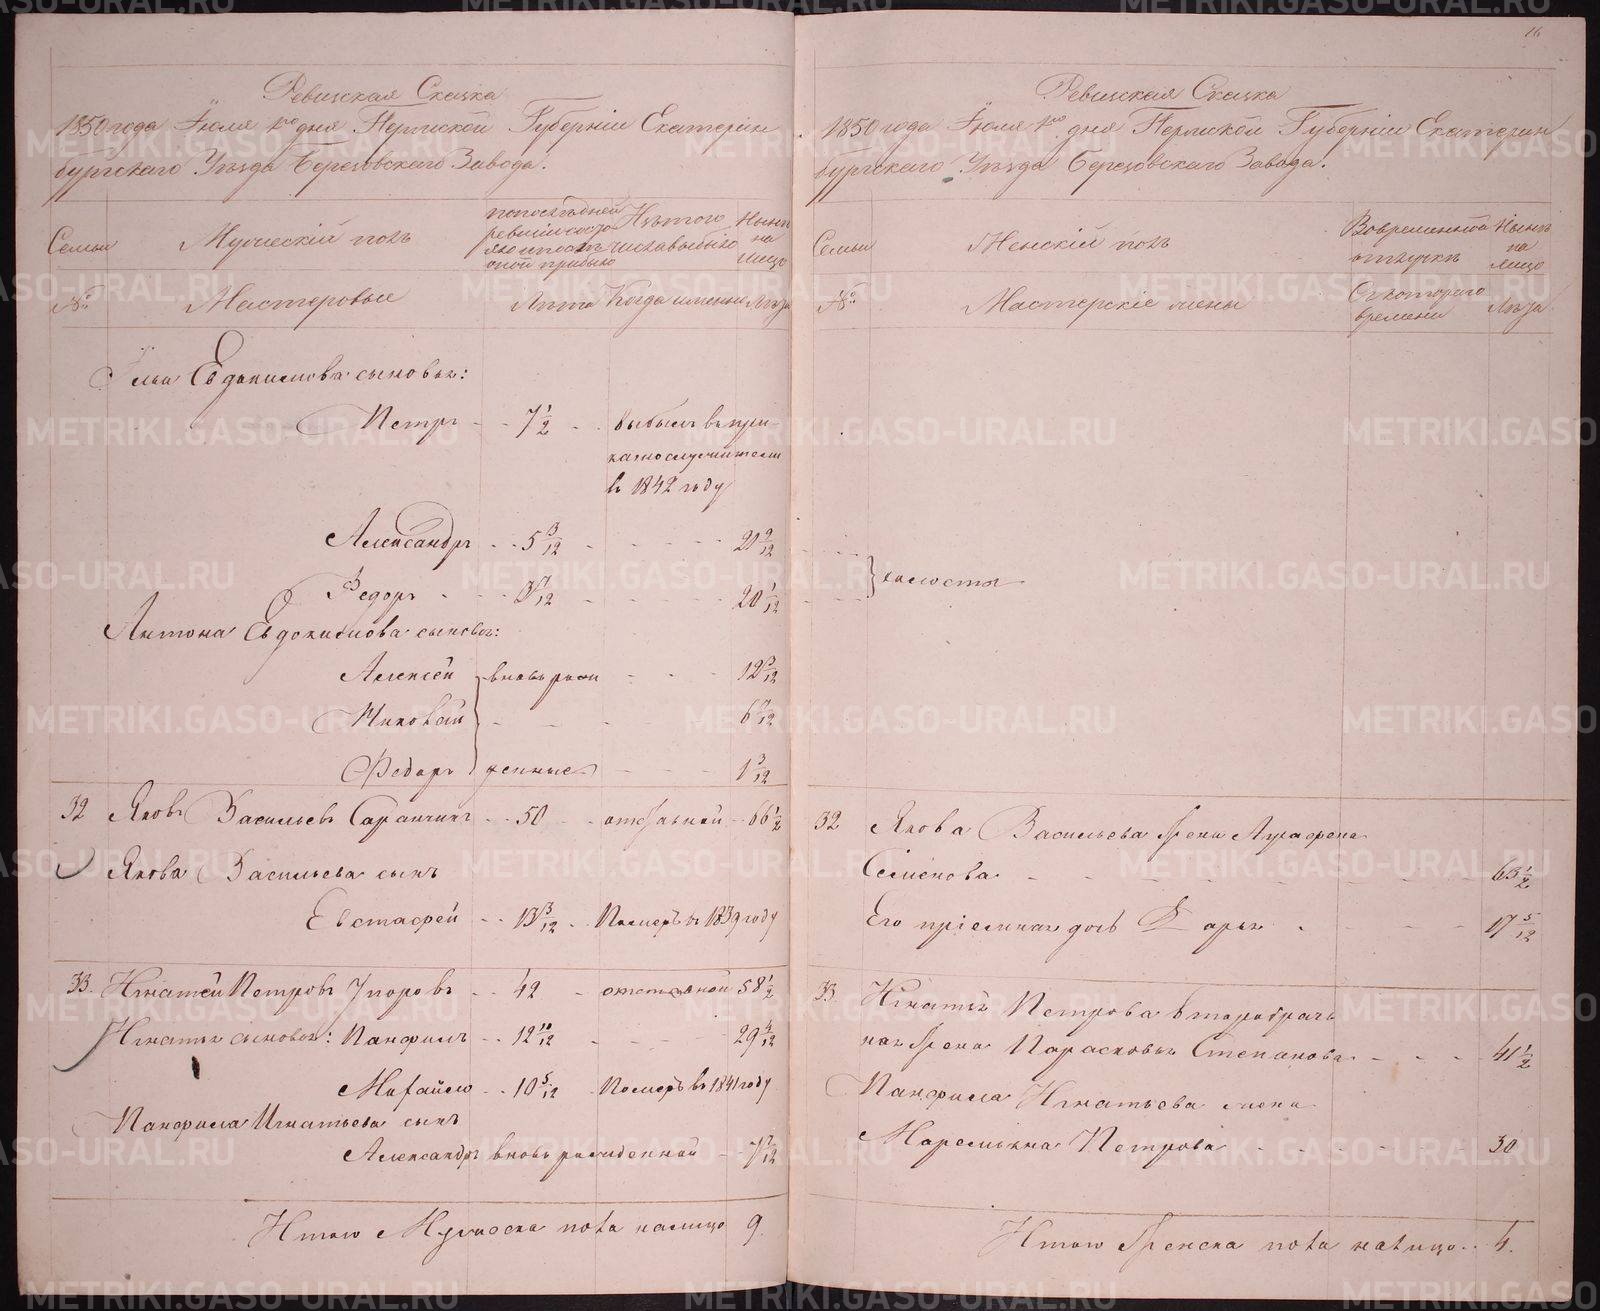 Ревизская Сказка
1850 года Июля 1го дня Пермской Губернiи Екатерин
бургскаго Уѣзда Березовскаго Завода.
Семьи
Мужескiй полъ
Нынѣ
на
лицо
№
Мастеровые
Лѣта
Когда именно
Лѣта
Ильи Евдокимова сыновья:
Петръ - - 7 1/2 - выбылъ въ при-
въ 1842 году
Александръ - - 5 3/12 - - - - - 21 9/12
Федоръ - - - - - - 20 1/12
Антона Евдокимова сыновья:
Алексей вновь рож - - - 12 3/12
Николай - - - - - 6 7/12
Федоръ денные - - - 1 3/12
32 Яковъ Васильевъ Саранчинъ - - 50 - отставной - 66 1/2
Якова Васильева сынъ
Евстафей - - 13 3/12 - Померъ в 1839 году
33. Игнатей Петровъ Упоровъ - - 42 - отставной 58 1/2
Игнатья сыновья: Панфилъ - - 12 10/12 - - - - 29 4/12
Михайло - - 10 5/12 Померъ въ 1841 году
Панфила Игнатьева сынъ
Александръ вновь рожденной - - 7/12
Итого Мужеска пола налицо 9.
16
Ревизская Сказка
1850 года Июля 1го дня Пермской Губернiи Екатерин
бургскаго Уѣзда Березовскаго Завода.
Семьи
Женскiй полъ
Вовременной
отлучкѣ
Нынѣ
на
лицо
№
Мастерскiе жены
Съ котораго
времени
Лѣта
холосты
32 Якова Васильева жена
Семенова - - - - - - 63 1/2
Его прiемная дочь Дарья - - - - - 17 5/12
33 Игнатья Петрова второбрач
ная жена Парасковья Степанова - - - 41 1/2
Панфила Игнатьева жена
Маремьяна Петрова - - - - - 30
Итого Женска пола налицо - - 4.
METRIKI.GASO-URAL.RU